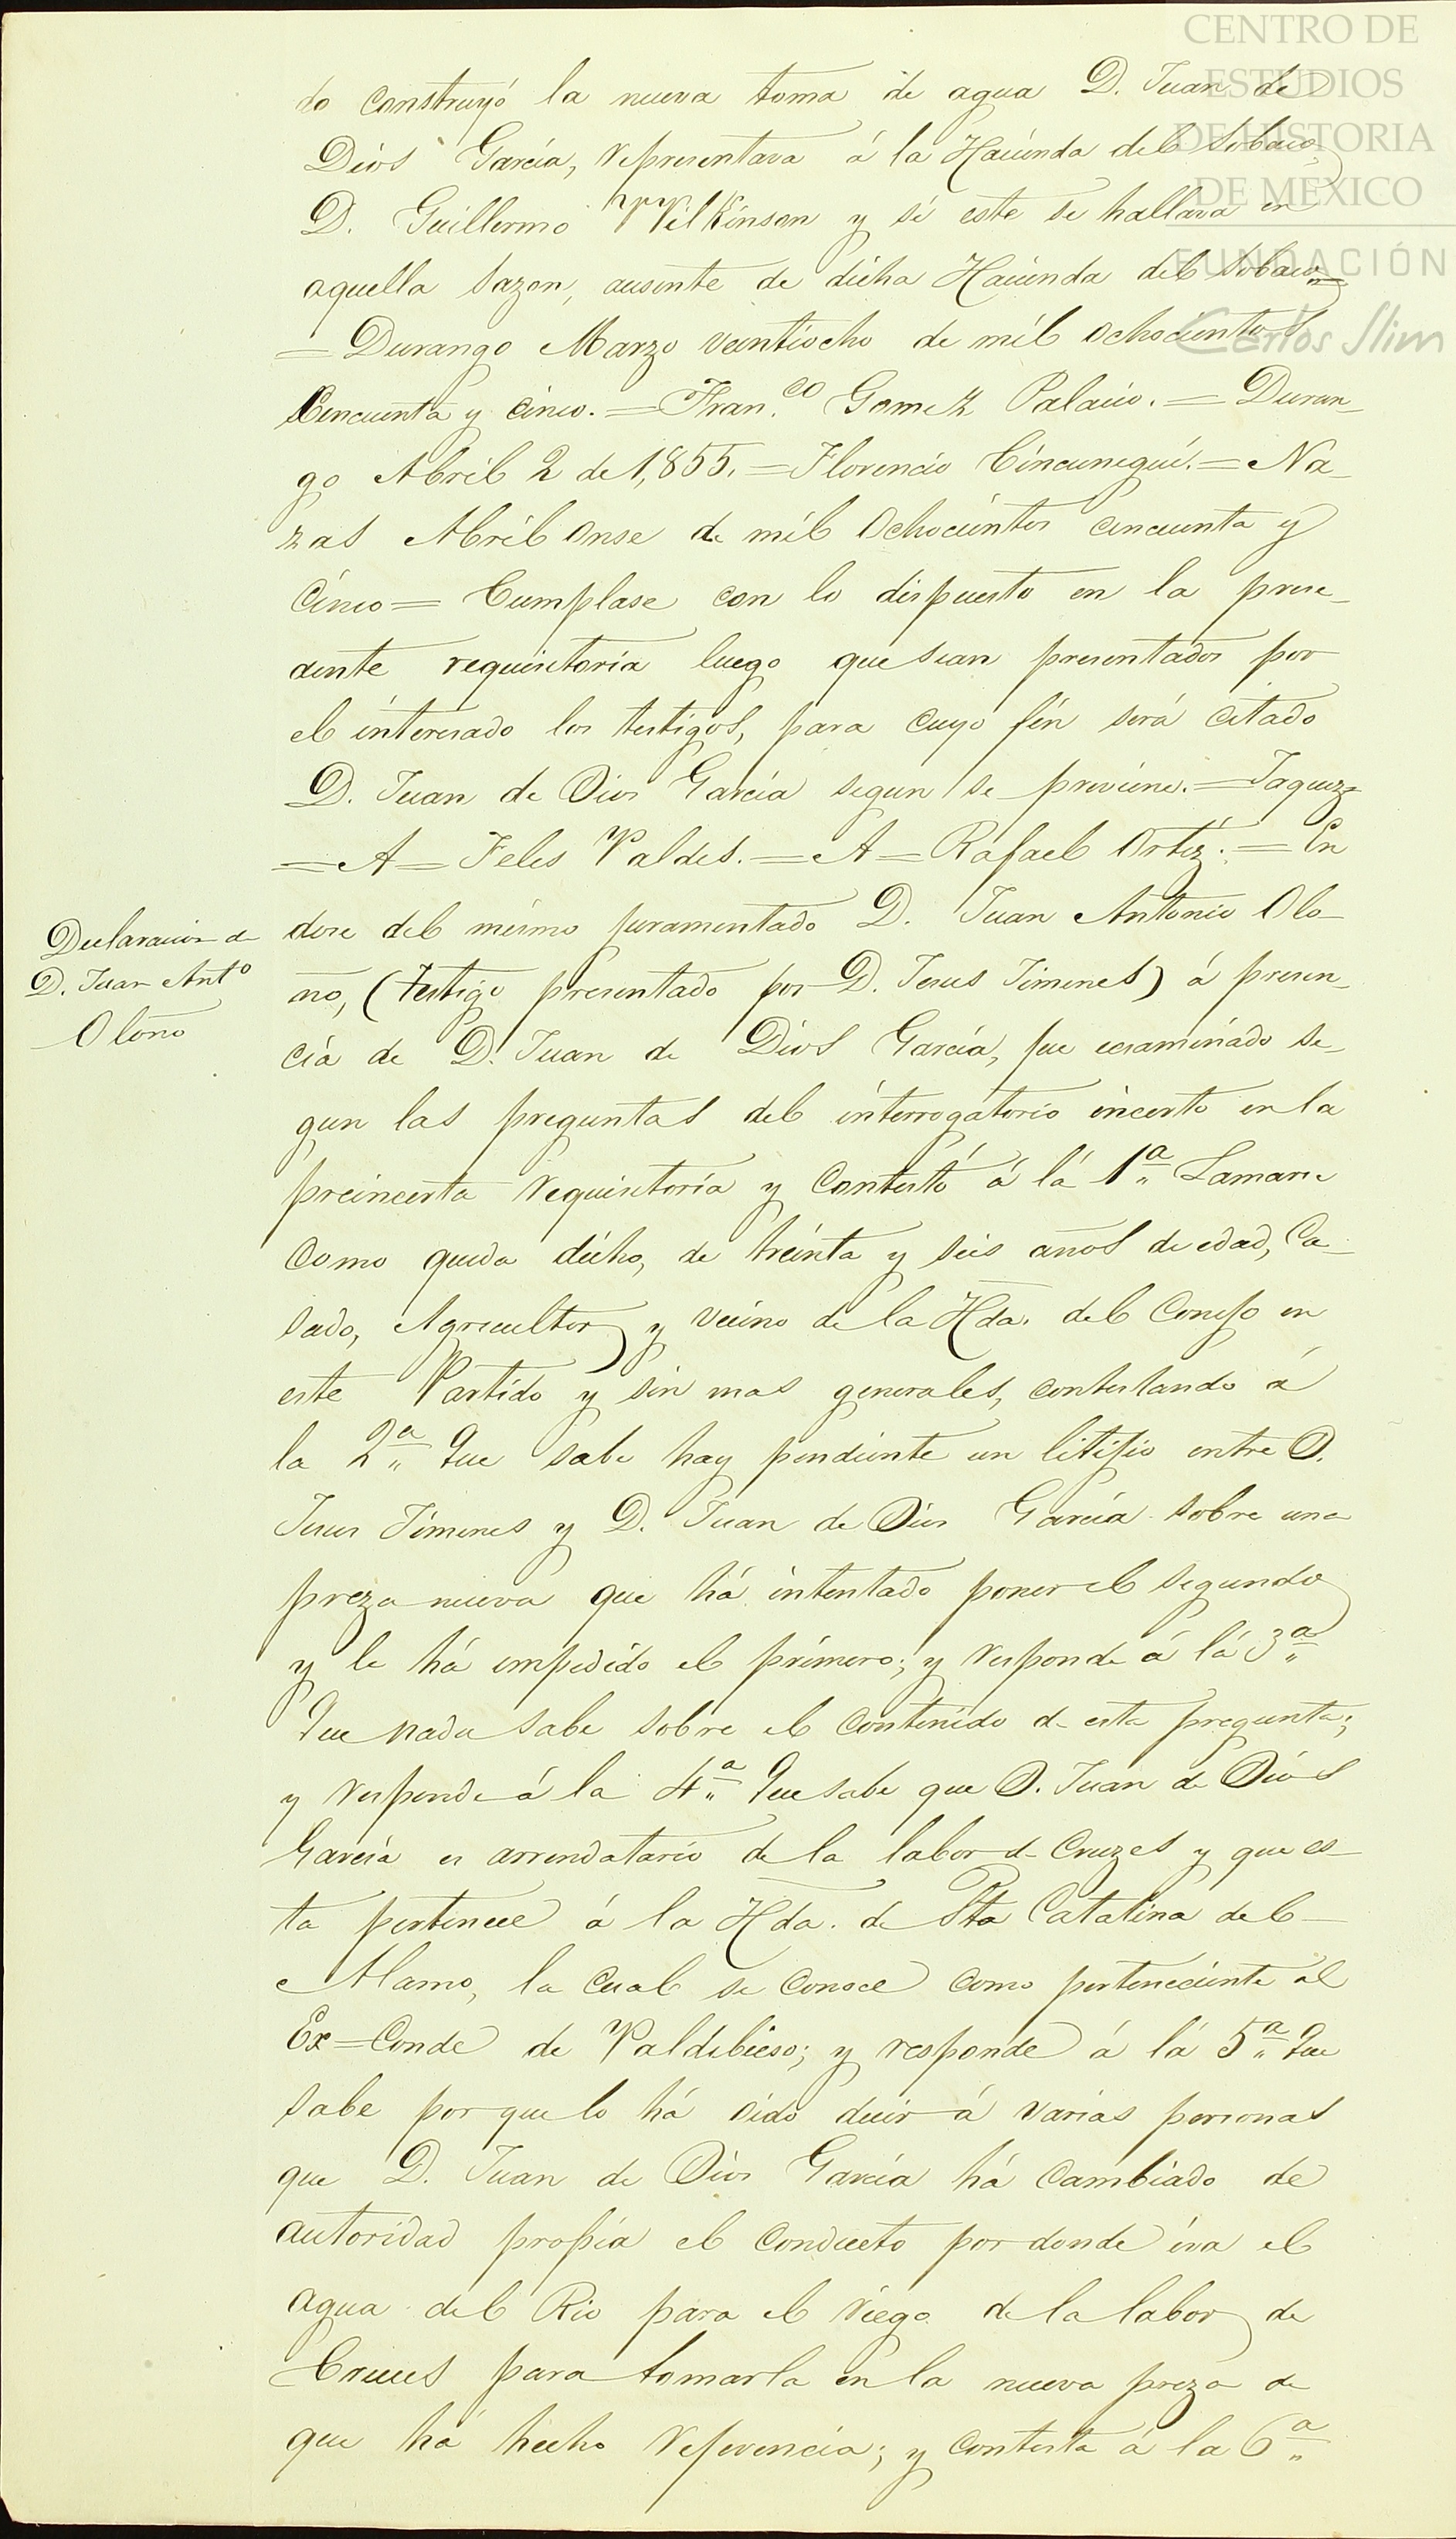 CENTRO DE
ESTUDIOS
DE HISTORIA
DE MÉXICO
FUNDACIÓN
Carlos Slim
do construyó la nueva toma de agua D. Juan de
Dios García, representava á la Hacienda del Sobaco
D. Guillermo Wilkinson y si este se hallava en
aquella sazon, ausente de dicha Hacienda del Sobaco=
=Durango Marzo veintiocho de mil ochocientos
Cincuenta y cinco.=Fran.co Gomez Palacio.=Duran-
go Abril 2 de 1,855.=Florencio Cincunegui.=Na-
zas Abril onse de mil ochocientos cincuenta y
Cinco=Cumplase con lo dispuesto en la prese-
dente requisitoria luego que sean presentados por
el interesado los testigos, para cuyo fin será citado
D. Juan de Dios García segun se previene.=Jaquez
=A=Feles Valdes.=A=Rafael Ortiz.=En
Declaracion de
D. Juan Anto
Oloño
dose del mismo juramentado D. Juan Antonio Olo-
ño, (testigo presentado por D. Jesus Jimenes) á presen-
cia de D. Juan de Dios García, fue ecsaminado se-
gun las preguntas del interrogatorio incerto en la
preincerta requisitoria y Contestó á lá 1.a Lamarse
como queda dicho, de treinta y seis años de edad, Ca-
sado, Agricultor y vecino de la Hda. del Conejo en
este Partido y sin mas generales, contestando á
la 2.a Que sabe hay pendiente un litijio entre D.
Jesus Jimenes y D. Juan de Dios García sobre una
preza nueva que há intentado poner el segundo
y le há impedido el primero; y responde á lá 3.a
Que nada sabe sobre el contenido de esta pregunta;
y responde á la 4.a Que sabe que D. Juan de Dios
García es arrendatario de la labor de Cruzes y que es-
ta pertenece á la Hda. de Sta Catalina del
Alamo, la cual se conoce como perteneciente al
Ex=Conde de Valdibieso; y responde á lá 5.a Que
sabe por que lo há oido decir á varias personas
que D. Juan de Dios García há cambiado de
autoridad propia el conducto por donde iva el
agua del Rio para el riego de la labor de
Cruces para tomarla en la nueva preza de
que há hecho referencia; y contesta á la 6.a